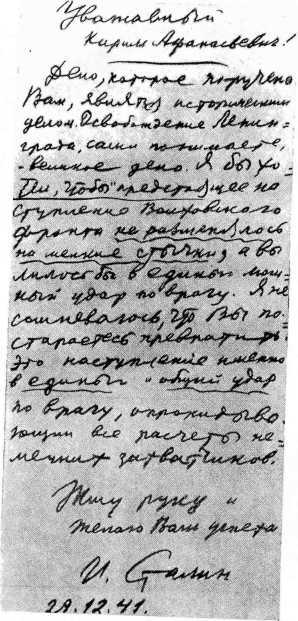 Уважаемый
Кирилл Афанасьевич!
Дело, которое поручено
Вам, является историческим
делом. Освобождение Ленин-
града, сами понимаете,
- великое дело. Я бы хо-
тел, чтобы предстоящее на-
ступление Волховского
фронта не разменялось
на мелкие стычки, а вы
лилось бы в единый мощ-
ный удар по врагу. Я не
сомневаюсь, что Вы по-
стараетесь превратить
это наступление именно
в единый и общий удар
по врагу, опрокидыва-
ющий все расчеты не-
мецких захватчиков.
Жму руку и
желаю Вам успеха
И. Сталин
29.12.41.